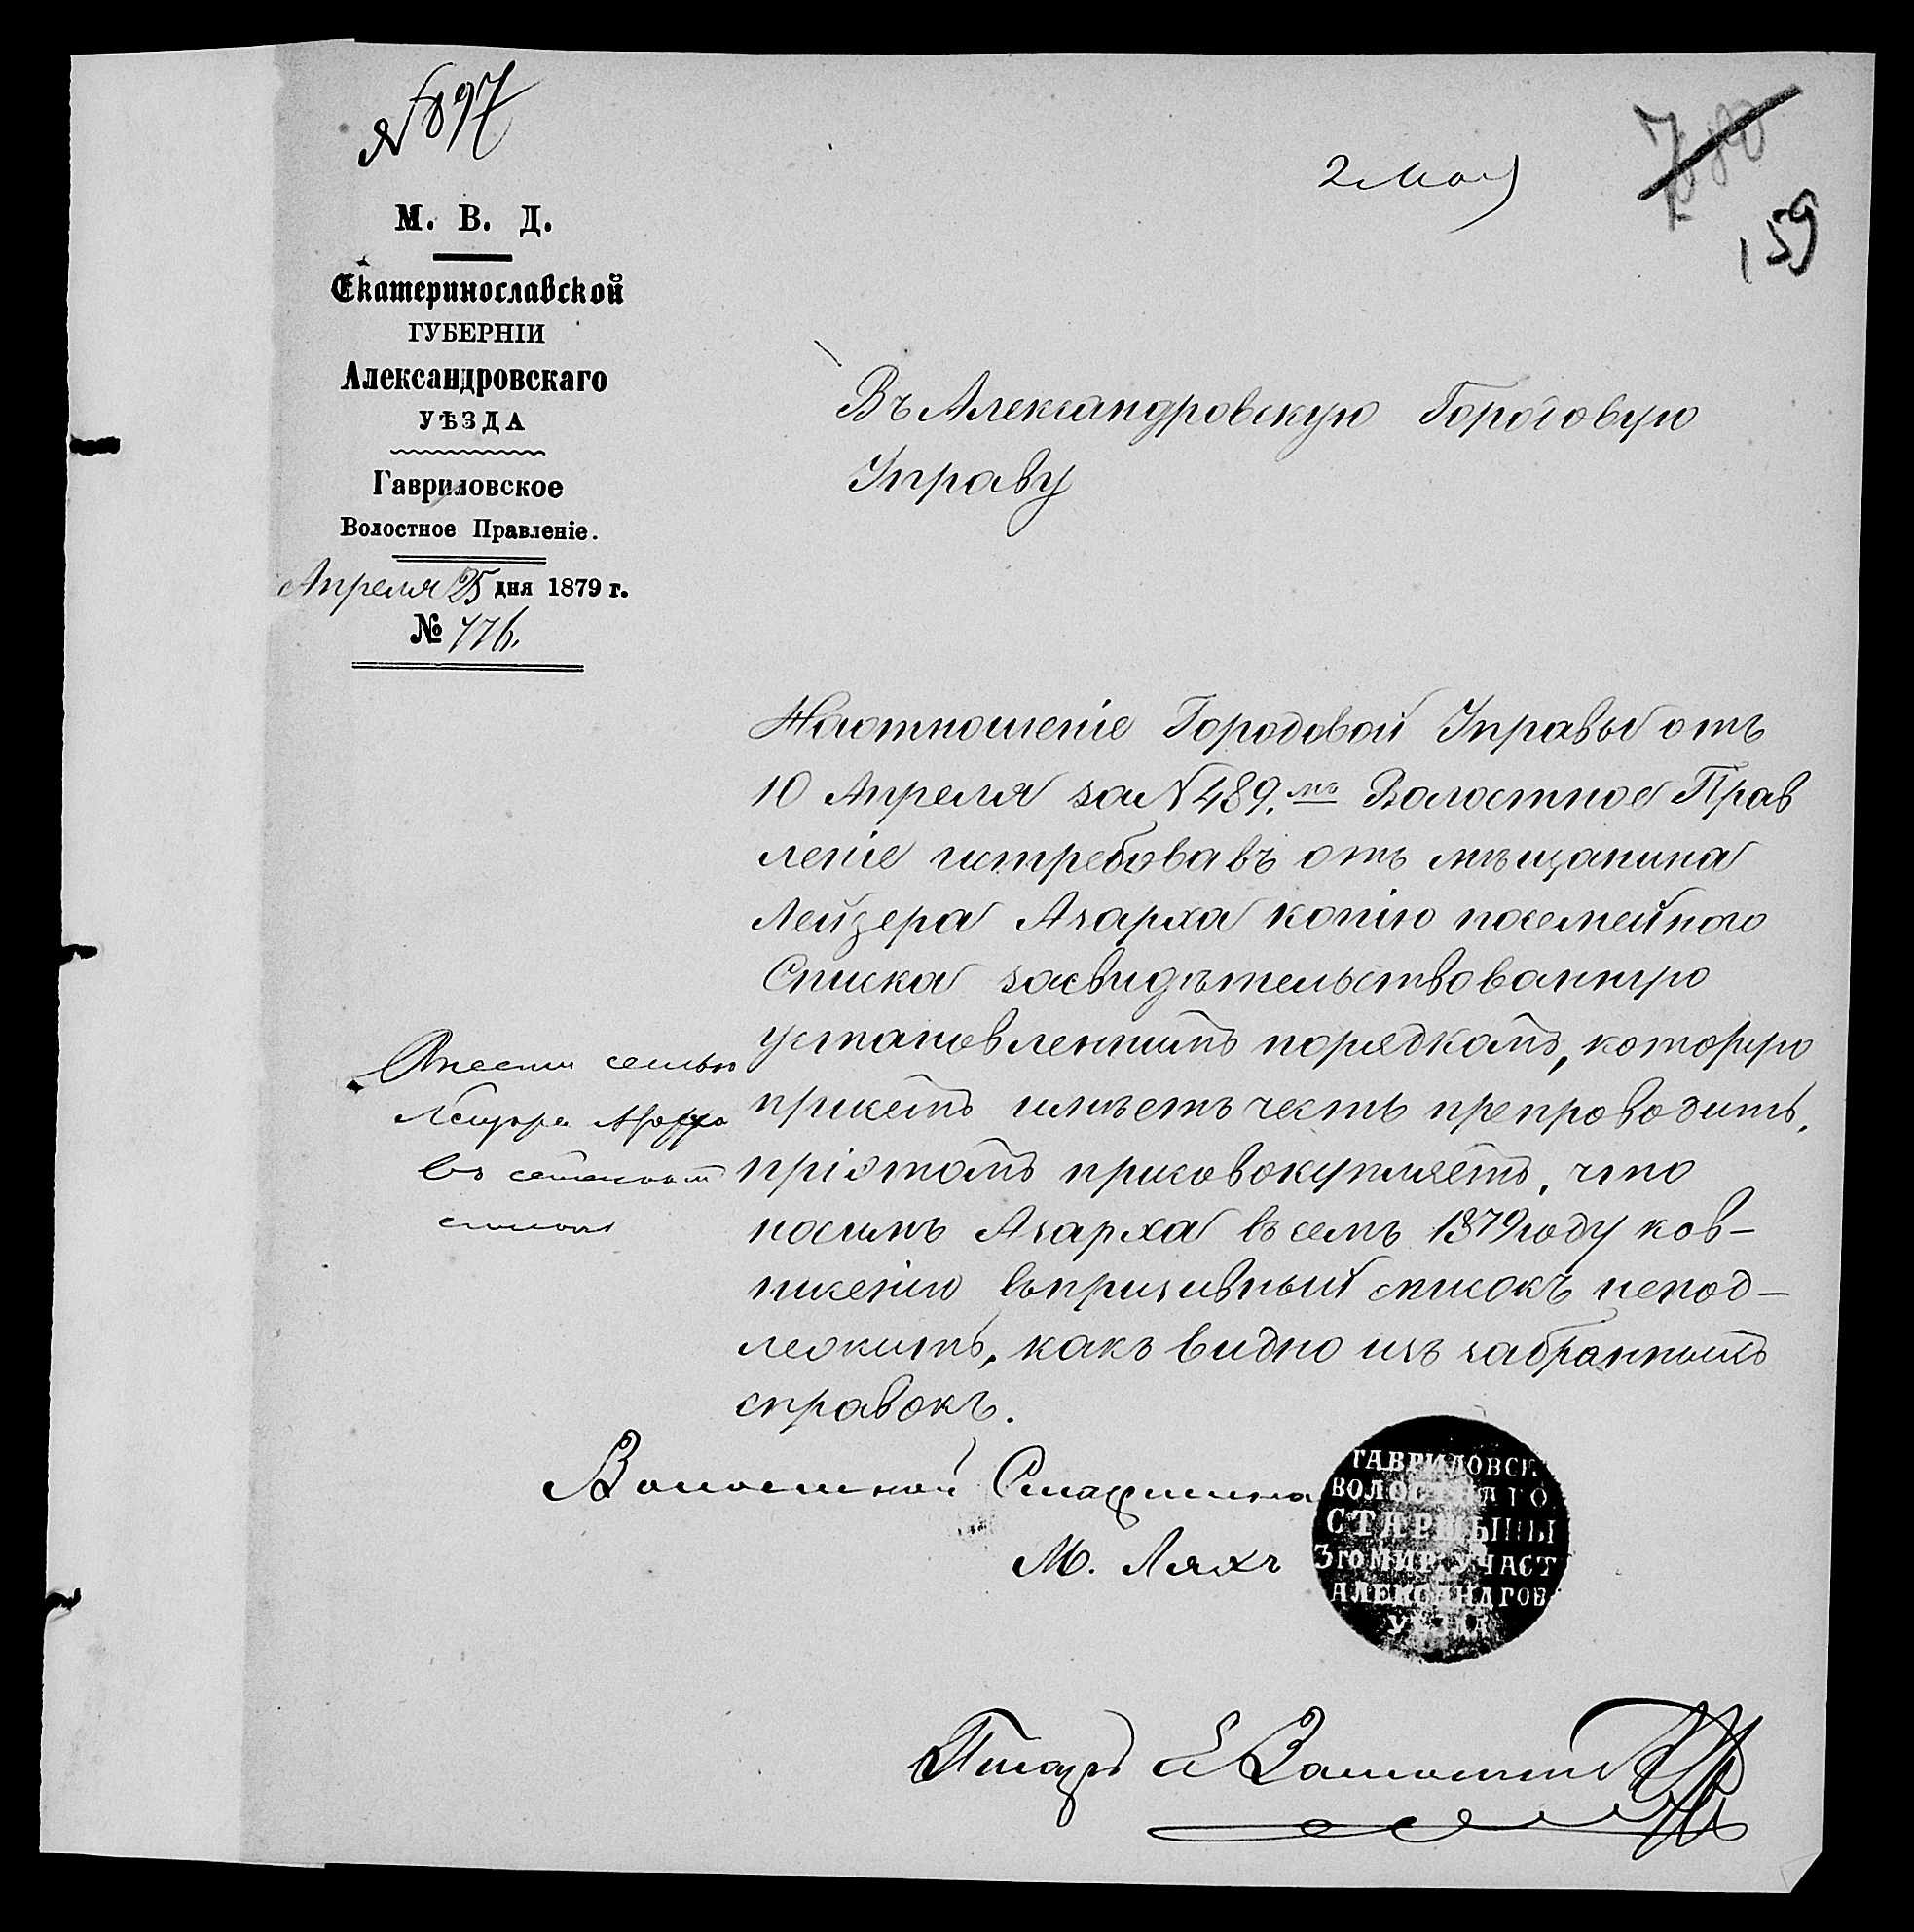 № 897
2 Мая
159
М. В. Д.
Екатеринославской
ГУБЕРНІИ
Александровскаго
УѢЗДА
Гавриловское
Волостное Правленіе.
Апреля 25 дня 1879 г.
№ 776.
Въ Александровскую Городовую
Управу
На отношеніе Городовой Управы отъ
10 Апреля за № 489.мъ Волостное Прав
леніе истребовавъ отъ мѣщанина
Лейзера Азарха копію посемейного
Списка засвидѣтельствованную
установленнымъ порядкомъ, которую
присемъ имѣетъ честь препроводить,
приэтомъ присовокупляетъ, что
посимъ Азарха въ семъ 1879 году ков-
писенію въ призивный списокъ непод-
лежитъ, какъ видно изъ забранныхъ
справокъ.
Внести семью
Лейзера Азарха
въ
списокъ
Волостной Старшина
М. Ляхъ
ГАВРИЛОВСК
ВОЛОСТНАГО
СТАРШЫНЫ
3го МИР. УЧАСТ
АЛЕКСАНДРОВ
УѢЗДА
Писарь